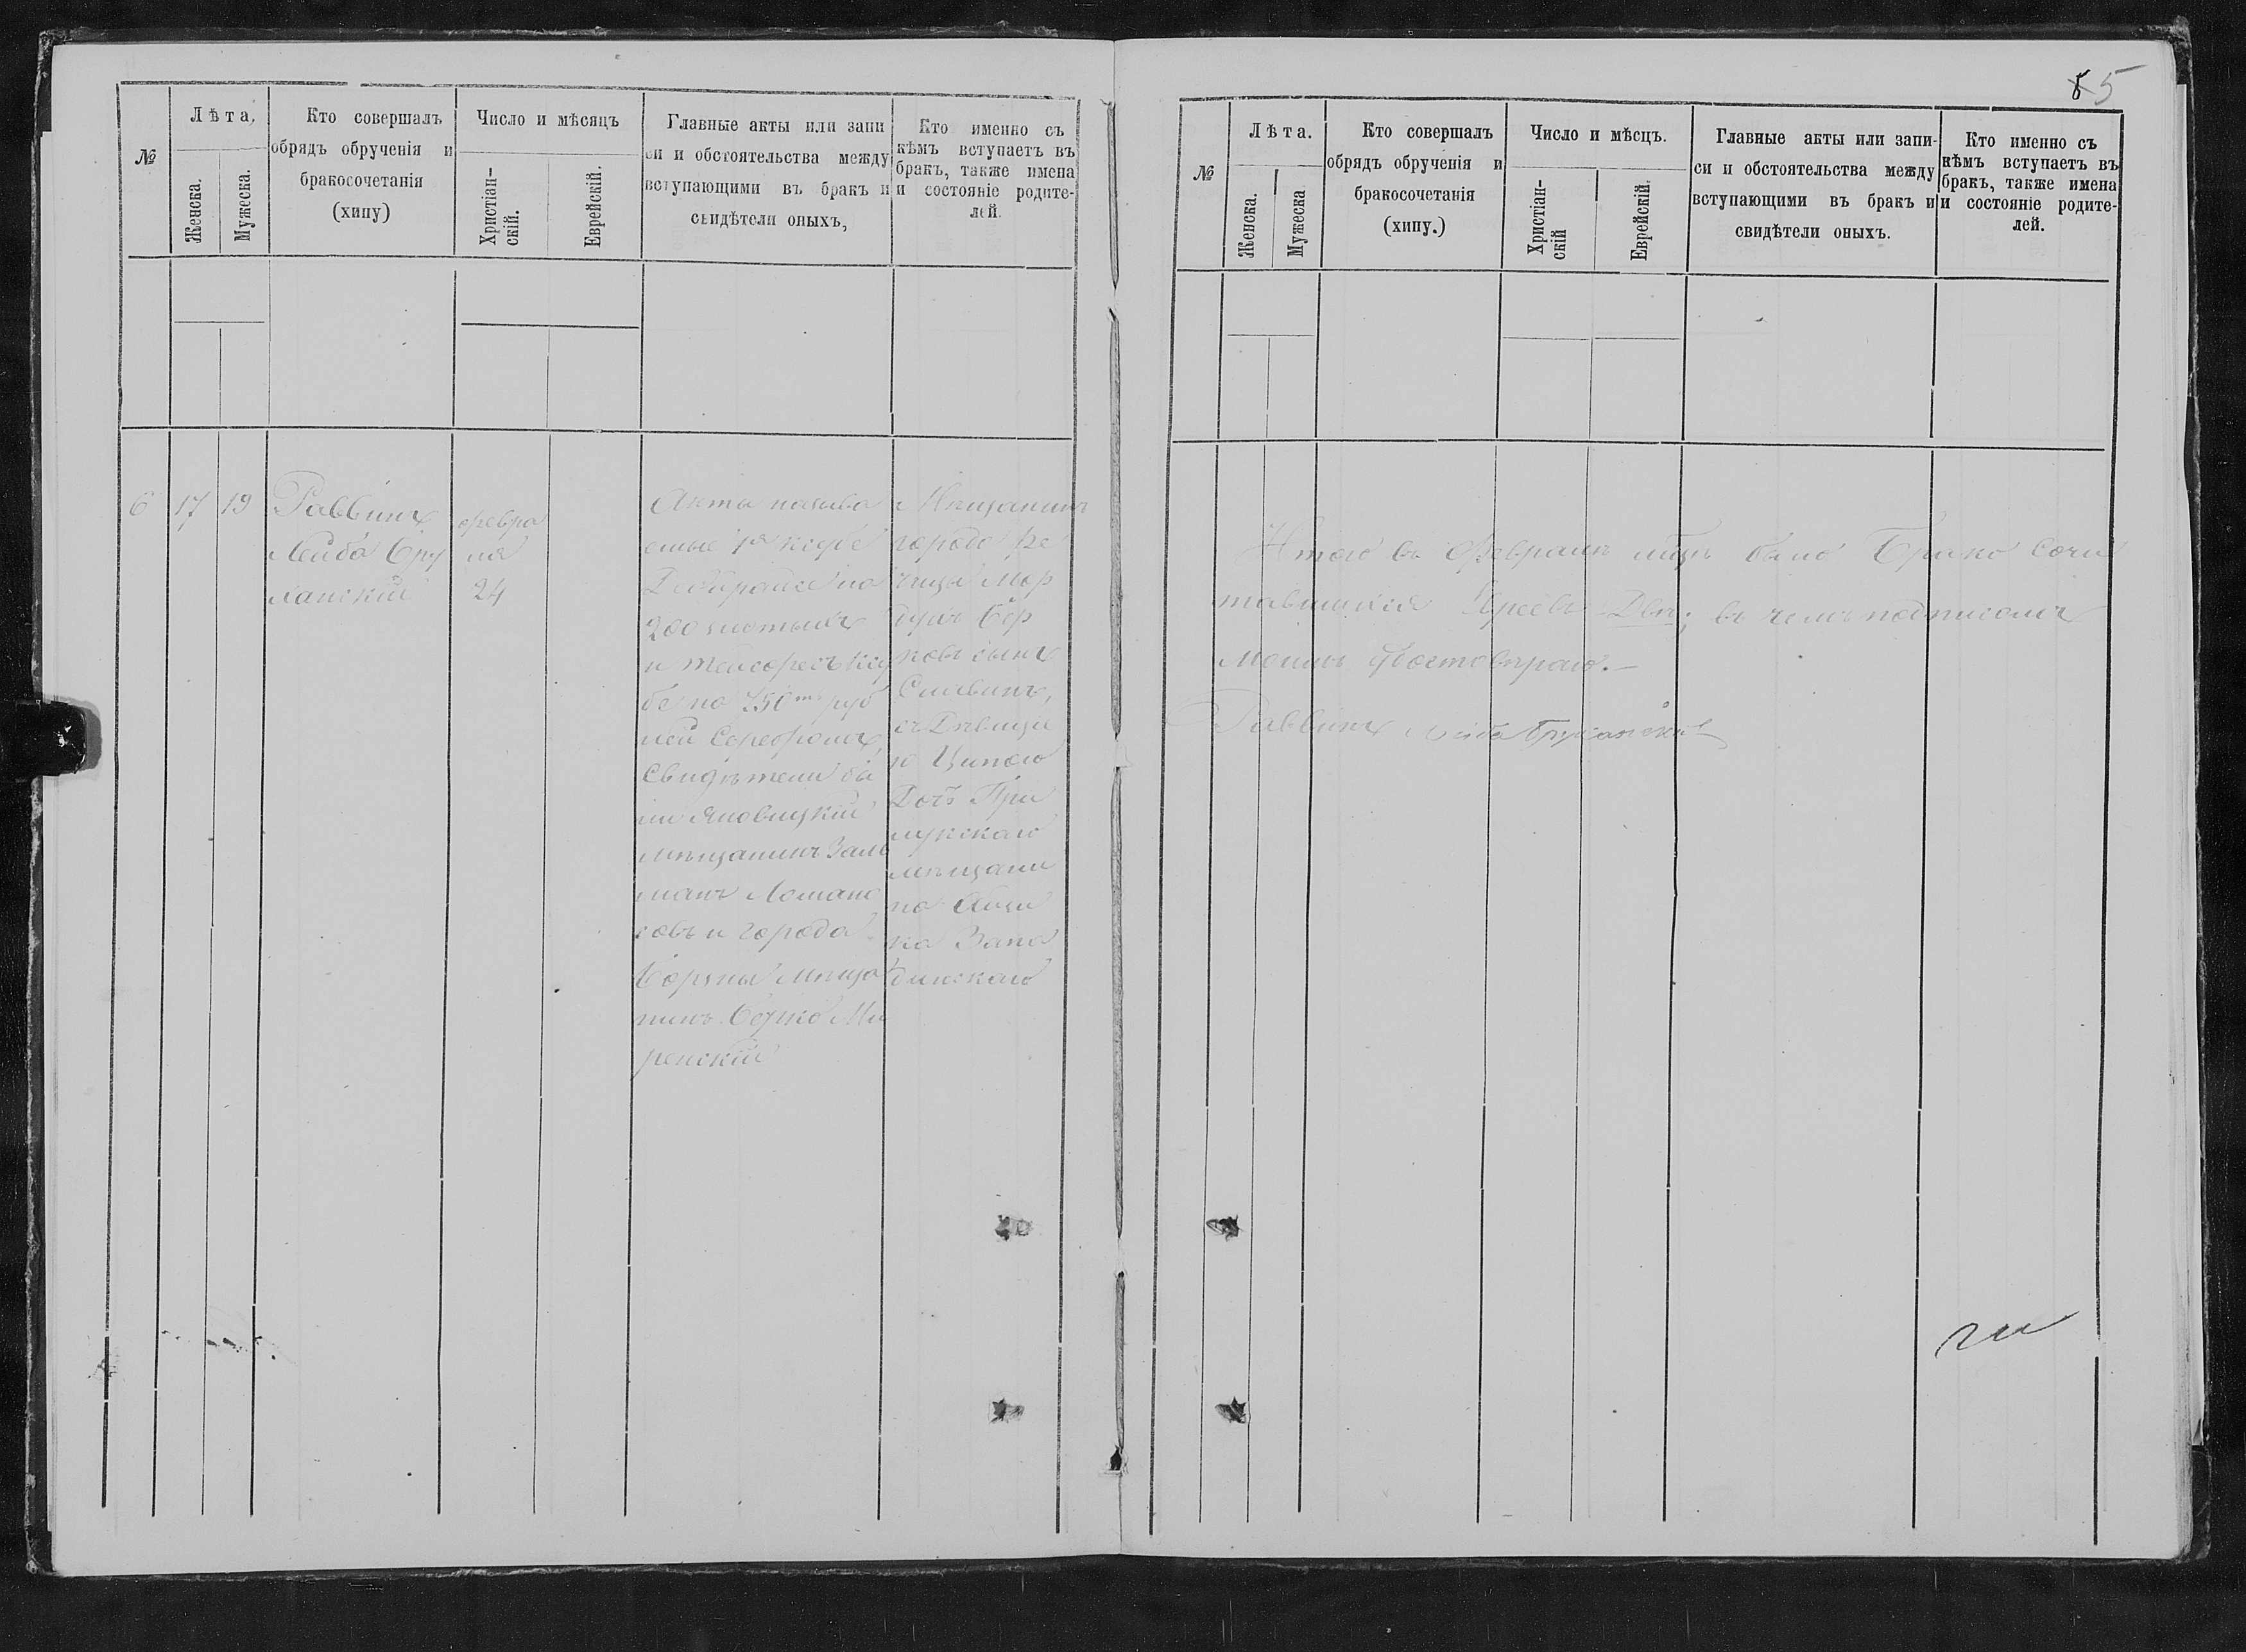 №
Лѣта,
Женска.
Мужеска.
Кто совершалъ
обрядъ обрученія и
бракосочетанія
(хипу)
Число и мѣсяцъ
Христіан-
скій.
Еврейскій.
Главные акты или запи
си и обстоятельства между
вступающими въ бракъ и
свидѣтели оныхъ,
Кто именно съ
кѣмъ вступаетъ въ
бракъ, также имена
и состояніе родите-
лей.
6
17
19
Раввинъ
Лейба Бру
ханскій
февра
ля
24
Акты называ
емые
200 злотыхъ
и
бе на 150 руб
лей Серебромъ,
Свидѣтели бы
ли Яновицкій
мѣщанинъ Заль
манъ
ковъ и города
мѣща
нинъ
ренскій
Мѣщанинъ
города Ре
чицы Мор
духъ Бер
ковъ сынъ
Славинъ,
съ Дѣвице
ю Ципою
Дочь При
лукскаго
мѣщани
на Айзи
ка
динскаго
85
№
Лѣта.
Женска.
Мужеска
Кто совершалъ
обрядъ обрученія и
бракосочетанія
(хипу.)
Число и мѣсцъ.
Христіан-
скій
Еврейскій.
Главные акты или запи-
си и обстоятельства между
вступающими въ бракъ и
свидѣтели оныхъ.
Кто именно съ
кѣмъ вступаетъ въ
бракъ, также имена
и состояніе родите-
лей.
Итого въ Февралѣ мцѣ было Брако Сочи
тавшихся Евреевъ Два; въ чемъ подписомъ
моимъ Удостовѣраю.—
Раввинъ Лейба Бруханскій